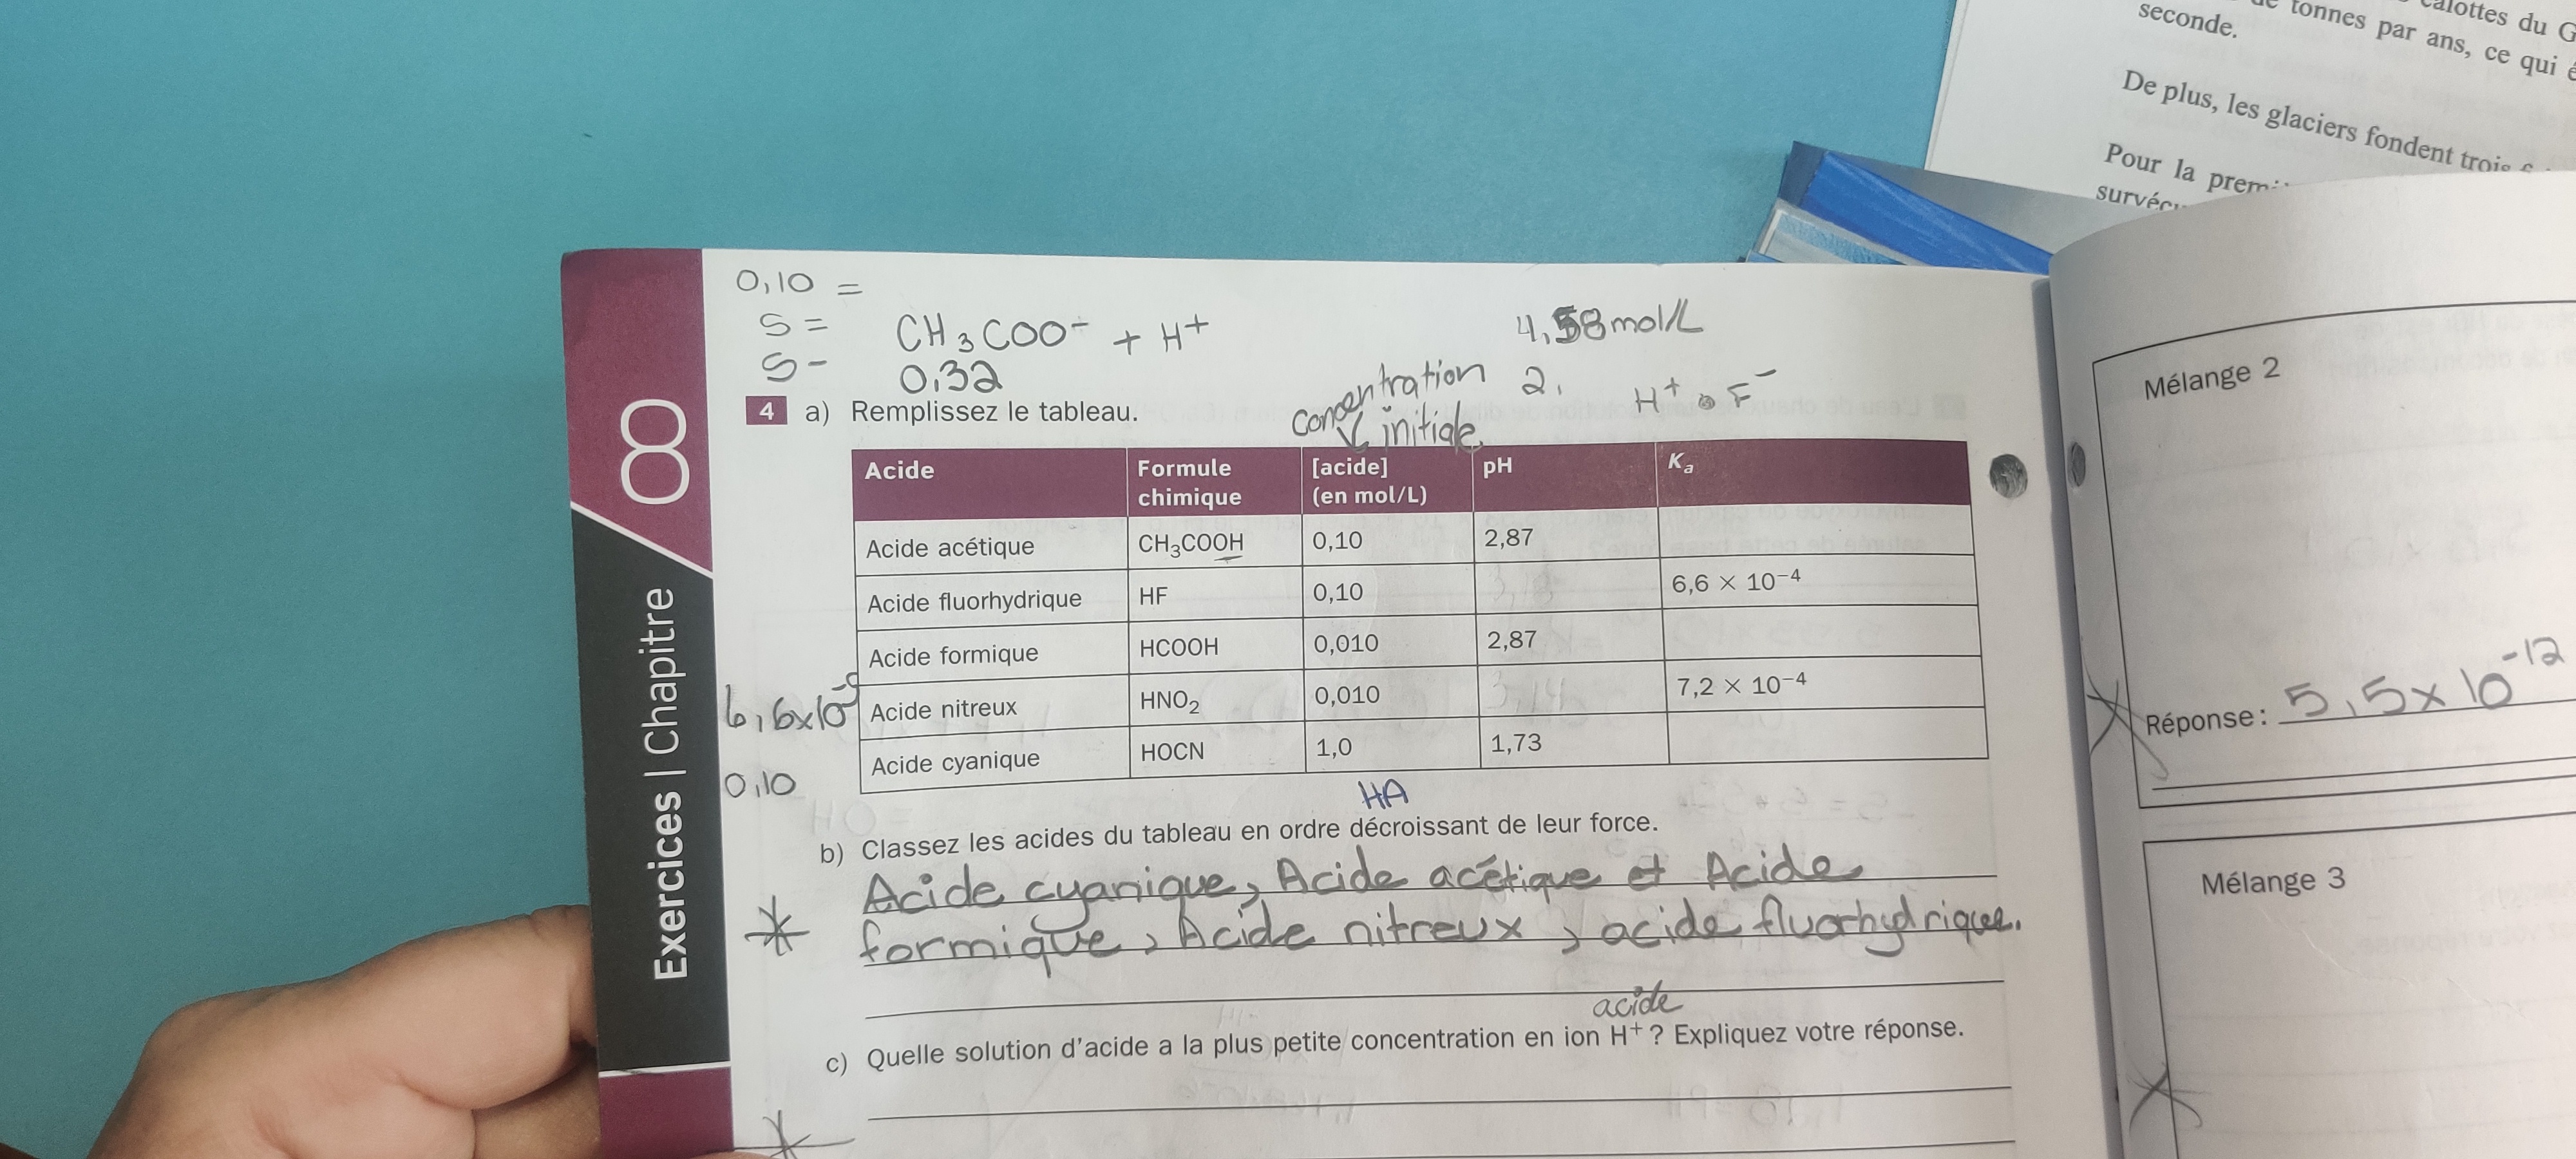 calottes du G
de tonnes par ans, ce qui é
seconde.
De plus, les glaciers fondent trois
Pour la
survéc
0,10 =
S =
S -
CH₃COO⁻ + H⁺
0,32
4,58mol/L
2,
H⁺ F⁻
concentration
initiale
4 a) Remplissez le tableau.
Acide Formule chimique [acide] (en mol/L) pH Kₐ
Acide acétique CH₃COOH 0,10 2,87
Acide fluorhydrique HF 0,10 6,6 × 10⁻⁴
Acide formique HCOOH 0,010 2,87
Acide nitreux HNO₂ 0,010 3,14 7,2 × 10⁻⁴
Acide cyanique HOCN 1,0 1,73
6,6x10
0,10
HA
b) Classez les acides du tableau en ordre décroissant de leur force.
Acide cyanique, Acide acétique et Acide
formique, Acide nitreux, acide fluorhydrique.
acide
c) Quelle solution d'acide a la plus petite concentration en ion H⁺ ? Expliquez votre réponse.
8
Exercices | Chapitre
Mélange 2
Réponse : 5,5x10⁻¹²
Mélange 3